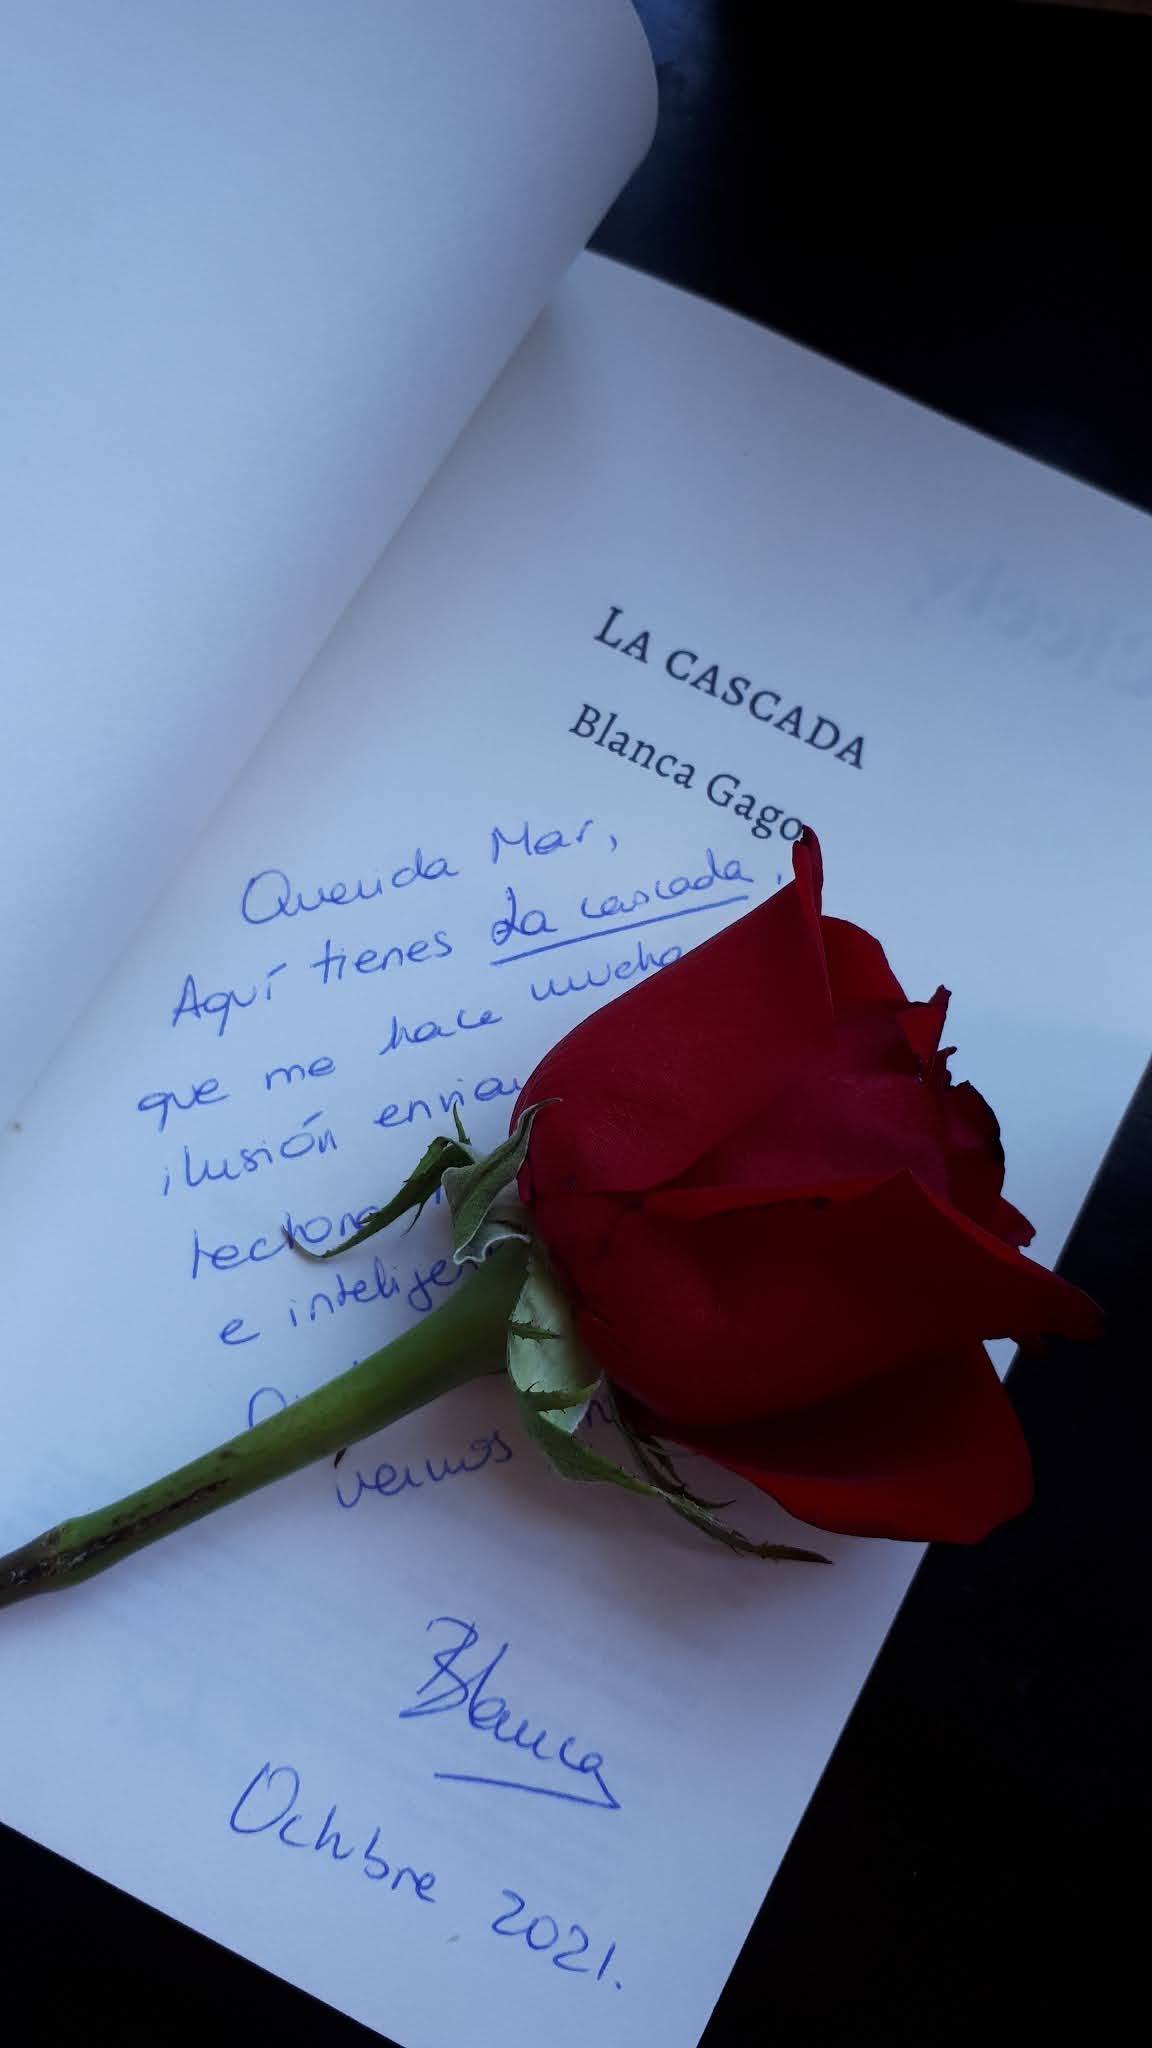 LA CASCADA
Blanca Gago
Querida Mar,
Aquí tienes La cascada,
que me hace mucha
ilusión
e
vemos
Blanca
Octubre 2021.